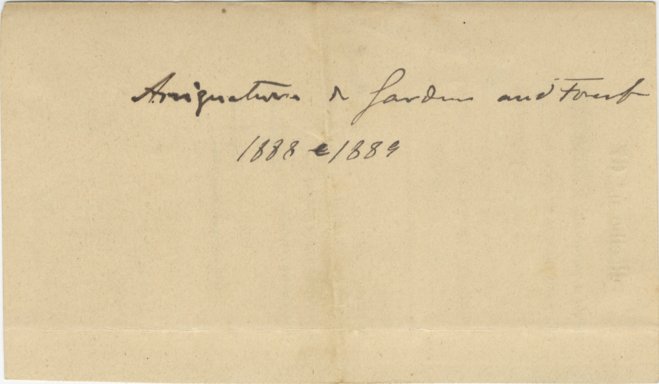 Assignatura de Garden and Forest
1888 e 1889